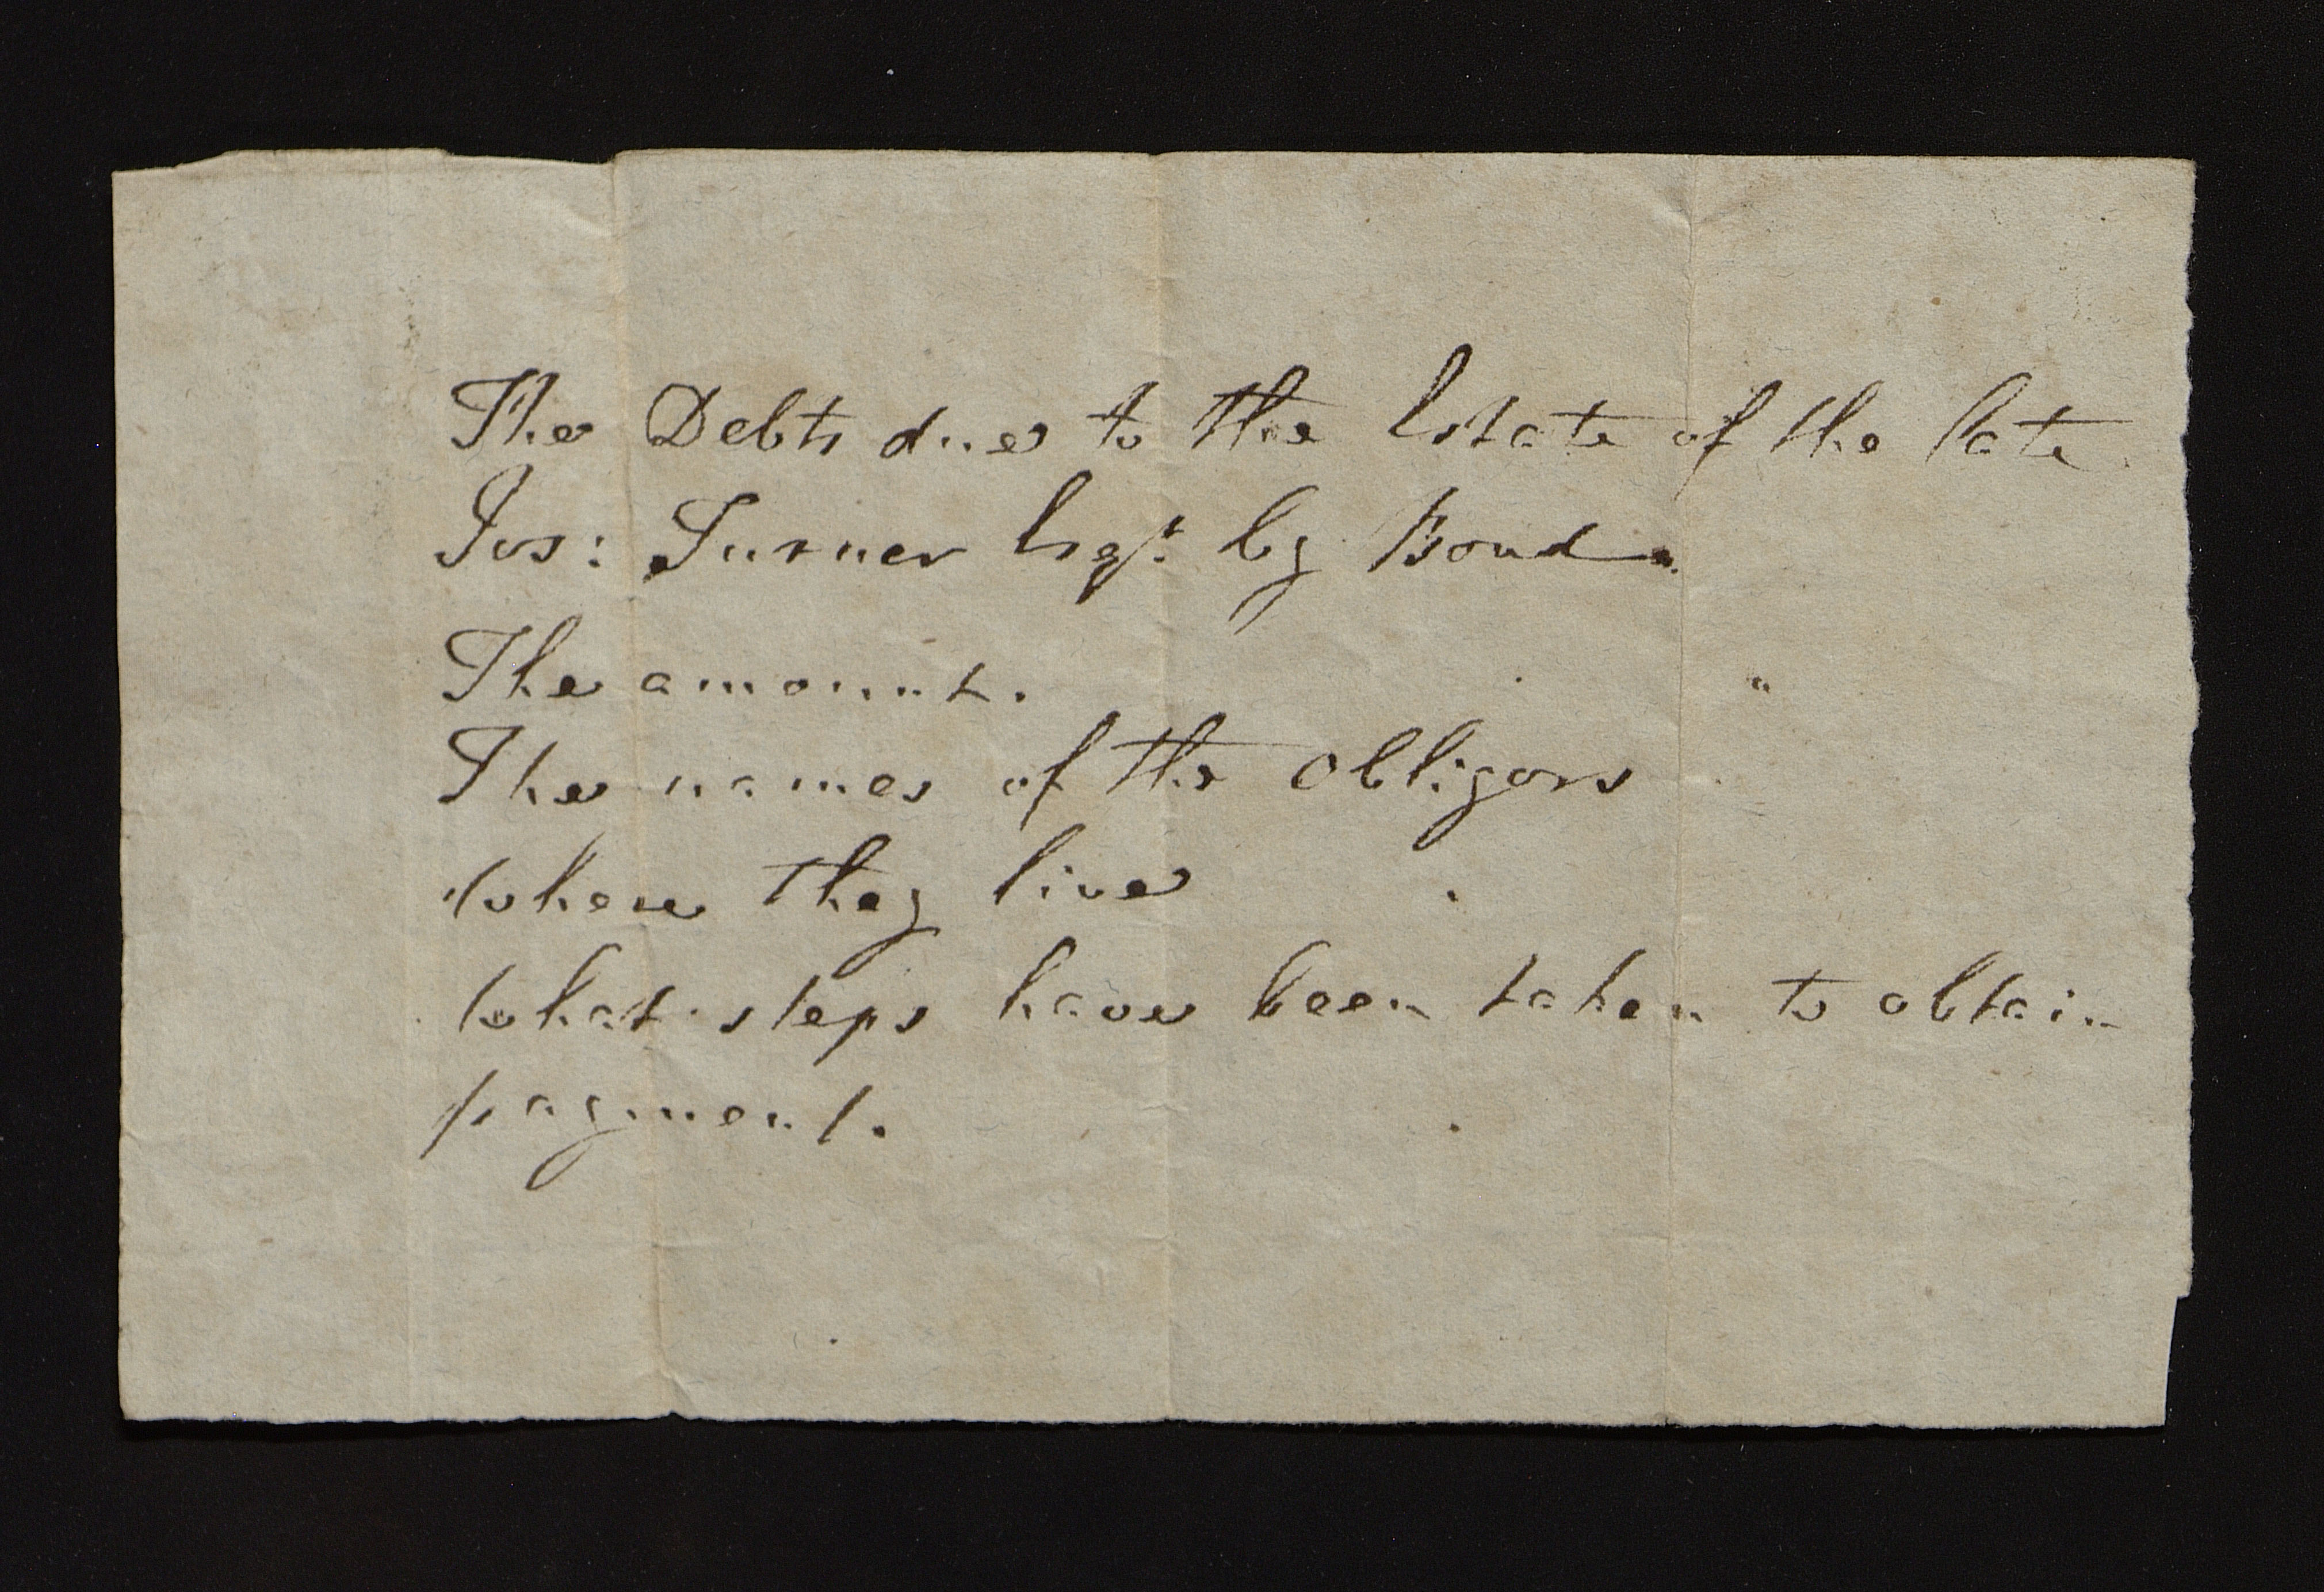 The Debts due to the Estate of the late
Jos: Turner Esqr. by Bond.
The amount.
The names of the Obligors
where they live
what steps have been taken to obtain
payment.